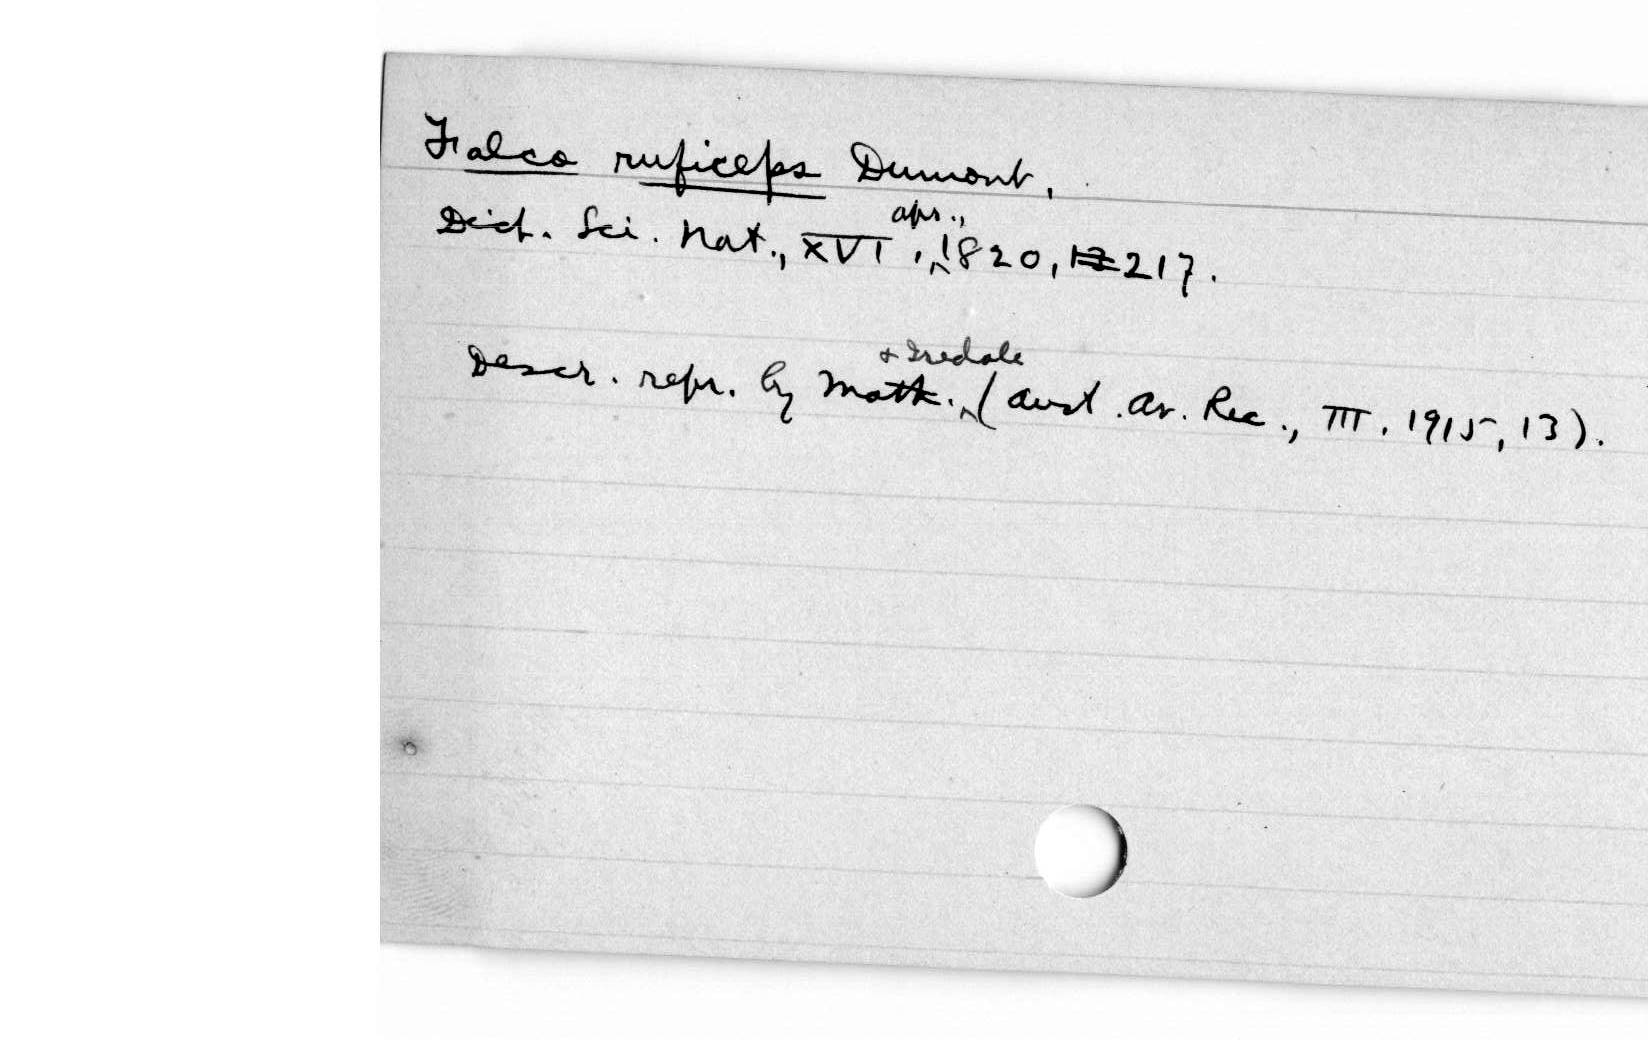 Falco ruficeps Dumont,
Dict. Sci. Nat., XVI, apr., 1820, 217.
Descr. repr. by Math. & Iredale (Aust. Av. Rec., III, 1915, 13).